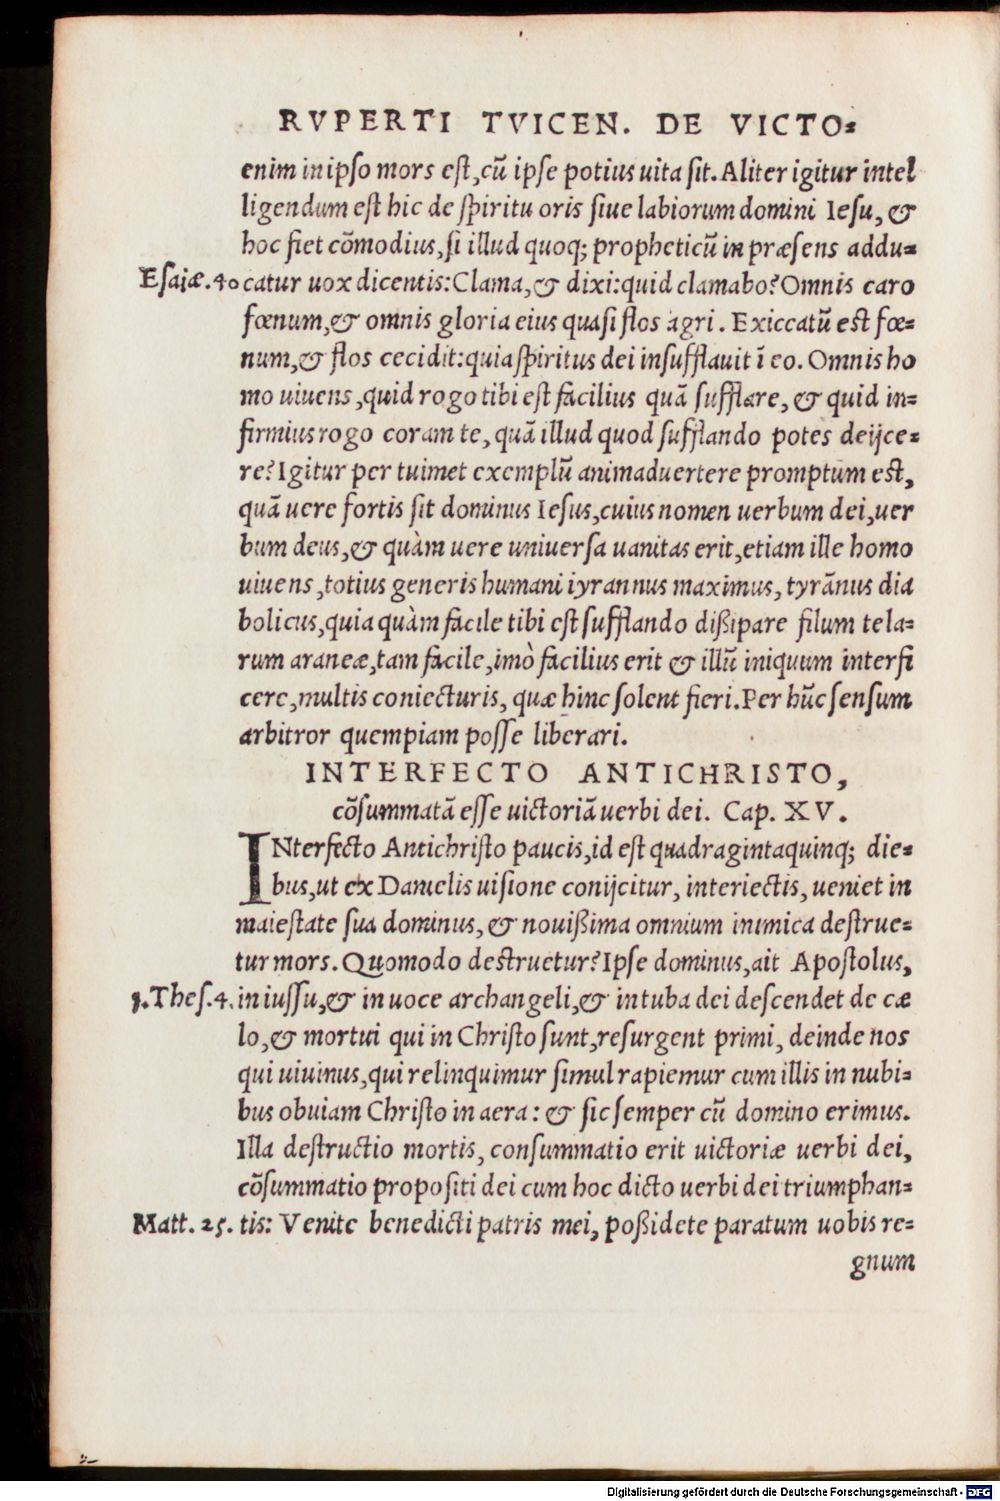 RVPERTI TVICEN. DE VICTO-
enim in ipso mors est, cũ ipse potius uita sit. Aliter igitur intel
ligendum est hic de spiritu oris siue labiorum domini Iesu, &
hoc fiet cõmodius, si illud quoq; propheticũ in præsens addu-
Esaiæ. 40 catur uox dicentis: Clama, & dixi: quid clamabo? Omnis caro
fœnum, & omnis gloria eius quasi flos agri. Exiccatũ est fœ-
num, & flos cecidit: quia spiritus dei insufflauit ĩ eo. Omnis ho
mo uiuens, quid rogo tibi est facilius quã sufflare, & quid in-
firmius rogo coram te, quã illud quod sufflando potes deijce-
re? Igitur per tuimet exemplũ animaduertere promptum est,
quã uere fortis sit dominus Iesus, cuius nomen uerbum dei, uer
bum deus, & quàm uere uniuersa uanitas erit, etiam ille homo
uiuens, totius generis humani iyrannus maximus, tyrãnus dia
bolicus, quia quàm facile tibi est sufflando dißipare filum tela-
rum araneæ, tam facile, imò facilius erit & illũ iniquum interfi
cere, multis coniecturis, quæ hinc solent fieri. Per hũc sensum
arbitror quempiam posse liberari.
INTERFECTO ANTICHRISTO,
cõsummatã esse uictoriã uerbi dei. Cap. XV.
INterfecto Antichristo paucis, id est quadragintaquinq; die-
bus, ut ex Danielis uisione conijcitur, interiectis, ueniet in
maiestate sua dominus, & nouißima omnium inimica destrue-
tur mors. Quomodo destruetur? Ipse dominus, ait Apostolus,
1. Thes. 4. in iussu, & in uoce archangeli, & in tuba dei descendet de cæ
lo, & mortui qui in Christo sunt, resurgent primi, deinde nos
qui uiuimus, qui relinquimur simul rapiemur cum illis in nubi-
bus obuiam Christo in aera: & sic semper cũ domino erimus.
Illa destructio mortis, consummatio erit uictoriæ uerbi dei,
cõsummatio propositi dei cum hoc dicto uerbi dei triumphan-
Matt. 25. tis: Venite benedicti patris mei, poßidete paratum uobis re-
gnum
Digitalisierung gefördert durch die Deutsche Forschungsgemeinschaft - DFG